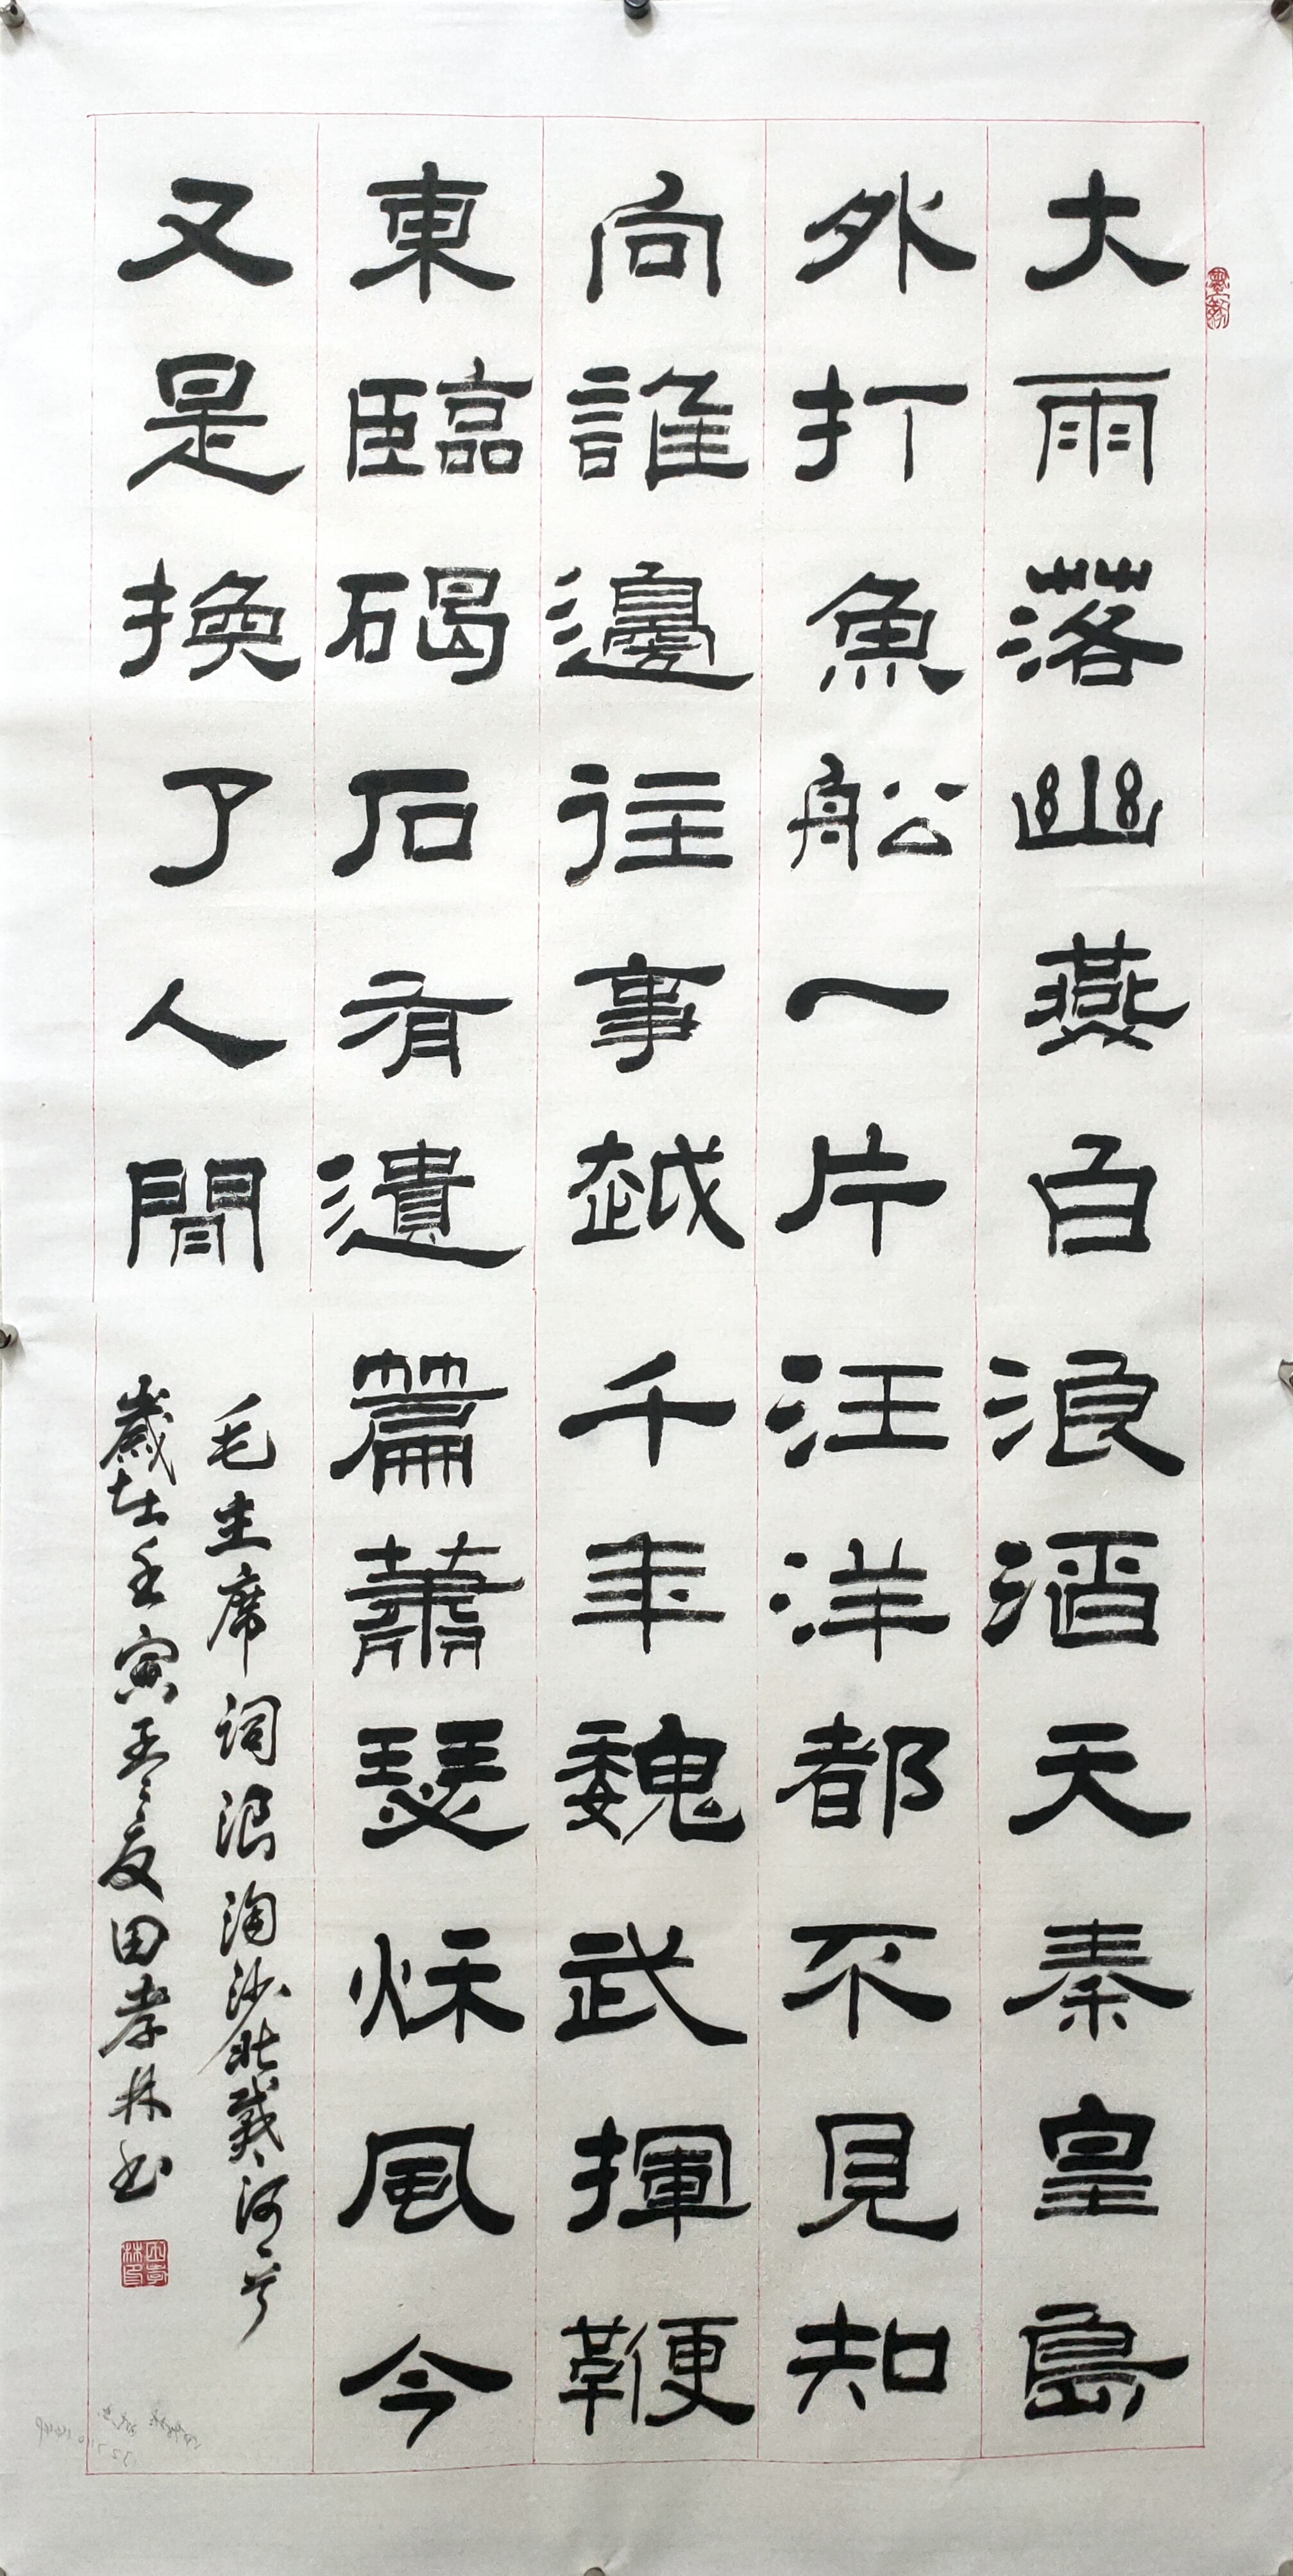 大雨落幽燕白浪滔天秦皇島
外打魚船一片汪洋都不見知
向誰邊往事越千年魏武揮鞭
東臨碣石有遺篇蕭瑟秌風今
又是換了人間
毛主席詞浪淘沙北戴河一首
歲在壬寅夏田孝林书
田孝林印